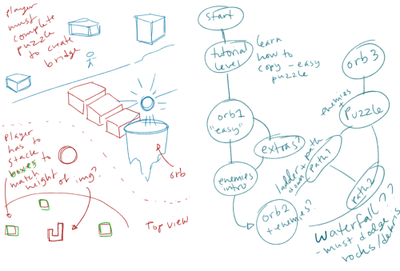 player
must
complete
puzzle
to create
bridge
player
has to
stack
boxes
to
match
height of img?
orb
Top view
start
tutorial
level
learn
how to
copy - easy
puzzle
orb 1
"easy"
extras?
enemies
intro
orb 2
+ enemies?
ladder + path
down
path 1
path 2
puzzle
enemies
orb 3
waterfall??
- must dodge
rocks/debris